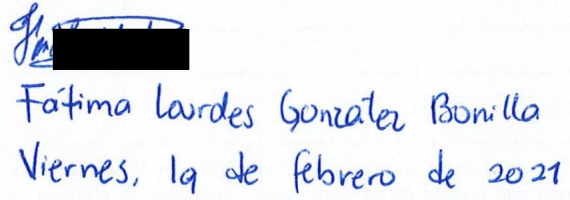 Fátima Lourdes González Bonilla
Viernes, 19 de febrero de 2021